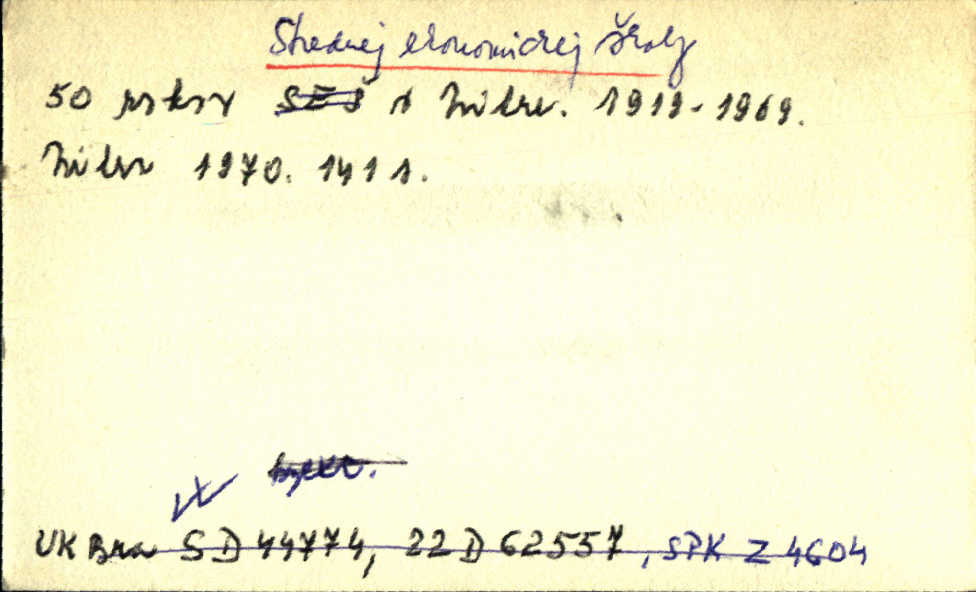 Strednej ekonomickej školy
50 rokov SEŠ v Nitre. 1919-1969.
Nitra 1970. 141 s.
UK Bra SD 44774, 22 D 62557, SPK Z 4604